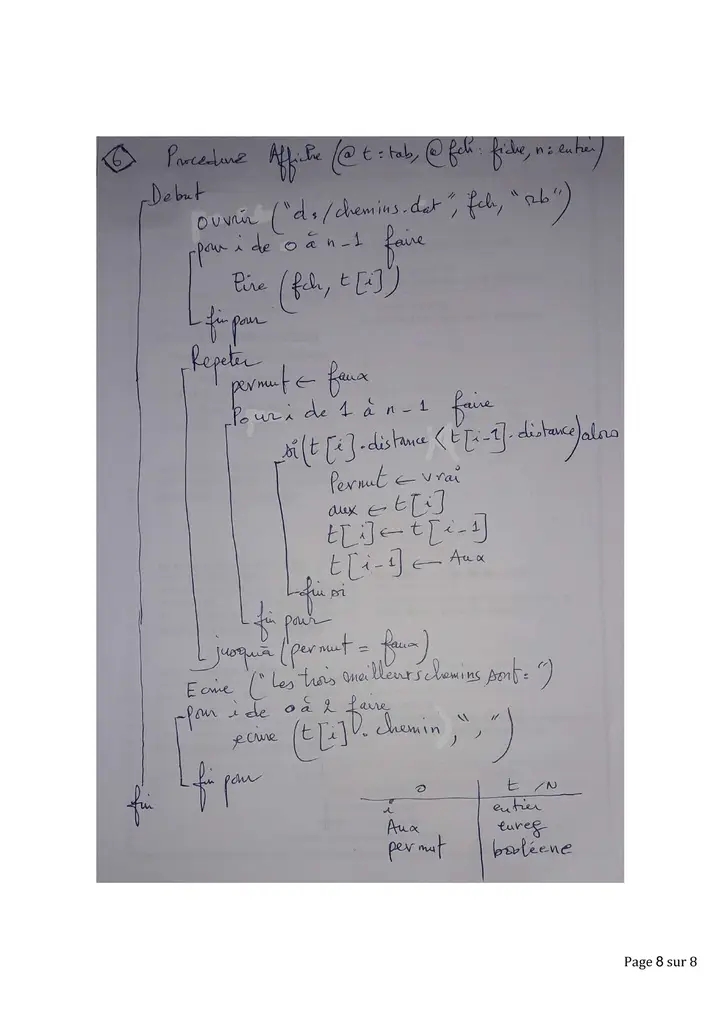 6 Procedure Affiche (@ t : tab, @ fch : fiche, n : entier)
Debut
ouvrir ("d:/chemins.dat", fch, "rb")
pour i de 0 à n-1 faire
lire (fch, t[i])
fin pour
Repeter
permut ← faux
Pour i de 1 à n-1 faire
si (t[i].distance < t[i-1].distance) alors
Permut ← vrai
aux ← t[i]
t[i] ← t[i-1]
t[i-1] ← Aux
fin si
fin pour
jusqu'à (permut = faux)
Ecrire ("Les trois meilleurs chemins sont : ")
pour i de 0 à 2 faire
ecrire (t[i].chemin, ", ")
fin pour
fin
O T/N
i entier
Aux enreg
permut booléene
Page 8 sur 8